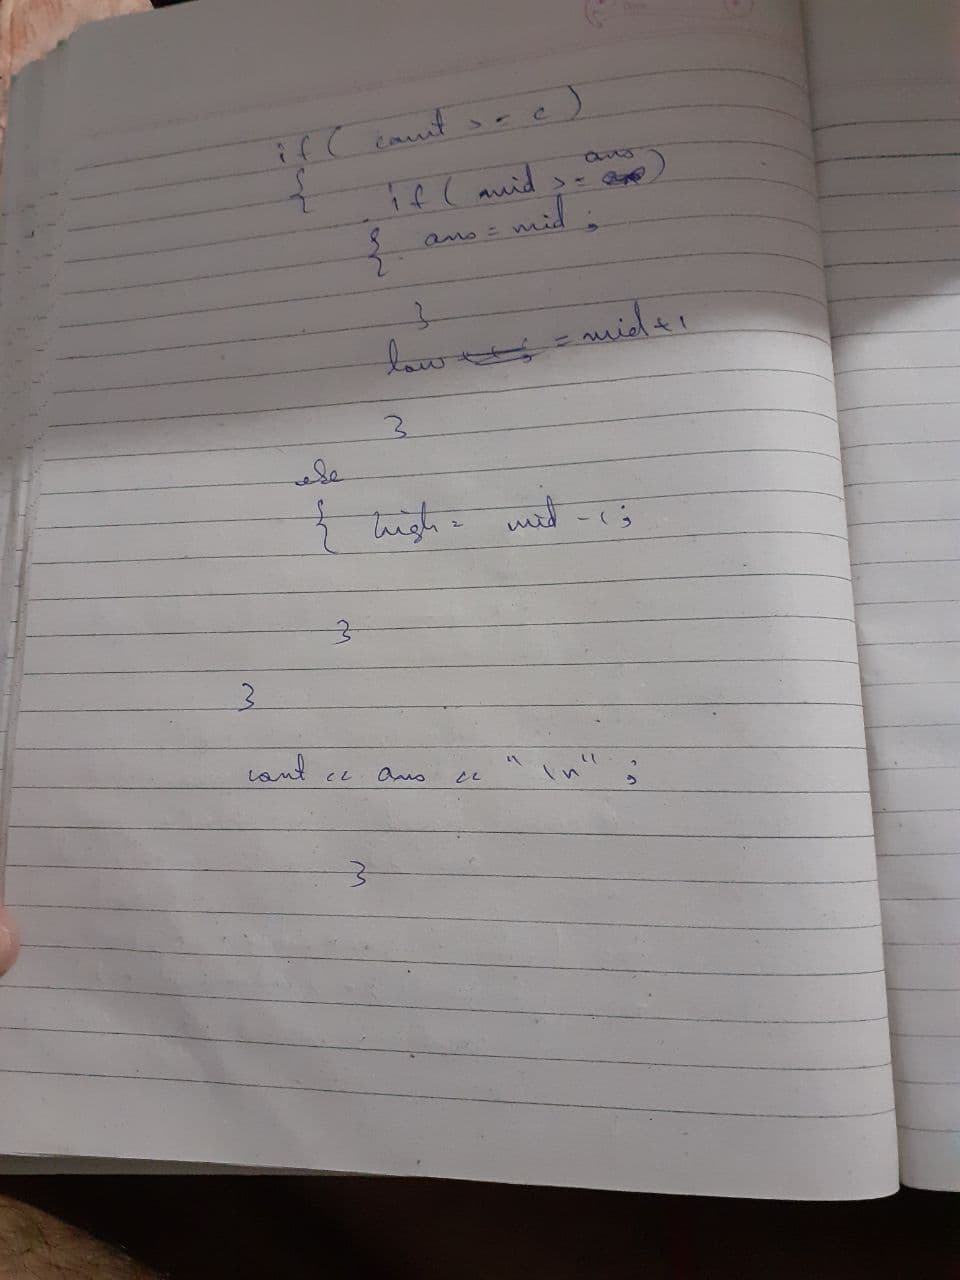 if ( count >= c )
{
if ( mid >= ans )
{ ans = mid ;
}
low = mid + 1
}
else
{ high = mid - 1 ;
}
}
cout << ans << "\n" ;
}